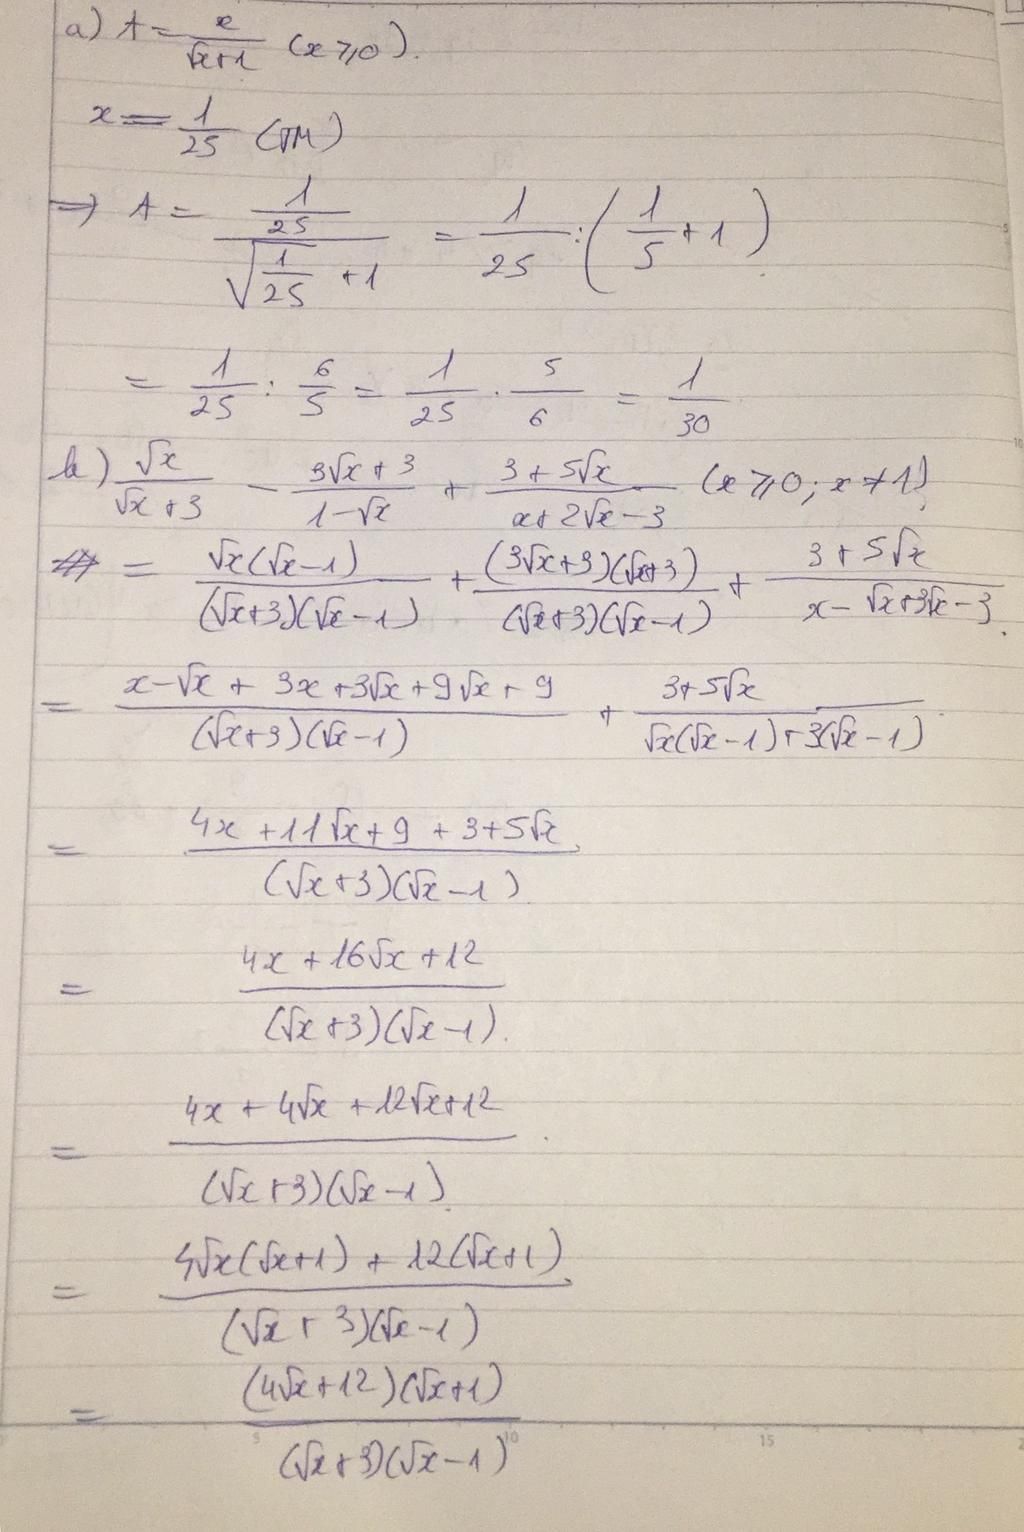 a) A = x/(√x+1) (x ⩾ 0).
x = 1/25 (TM)
⇒ A = (1/25)/(√(1/25) + 1) = 1/25 : (1/5 + 1)
= 1/25 : 6/5 = 1/25 . 5/6 = 1/30
b) √x/(√x + 3) - (3√x + 3)/(1 - √x) + (3 + 5√x)/(x + 2√x - 3) (x ⩾ 0; x ≠ 1)
= √x(√x - 1)/((√x+3)(√x - 1)) + (3√x+3)(√x+3)/((√x+3)(√x - 1)) + (3 + 5√x)/(x - √x + 3√x - 3)
= (x - √x + 3x + 3√x + 9√x + 9)/((√x+3)(√x - 1)) + (3 + 5√x)/(√x(√x - 1) + 3(√x - 1))
= (4x + 11√x + 9 + 3 + 5√x)/((√x + 3)(√x - 1))
= (4x + 16√x + 12)/((√x + 3)(√x - 1)).
= (4x + 4√x + 12√x + 12)/((√x + 3)(√x - 1)).
= (4√x(√x+1) + 12(√x+1))/((√x + 3)(√x - 1))
= (4√x + 12)(√x+1)/((√x + 3)(√x - 1))
5 10 15